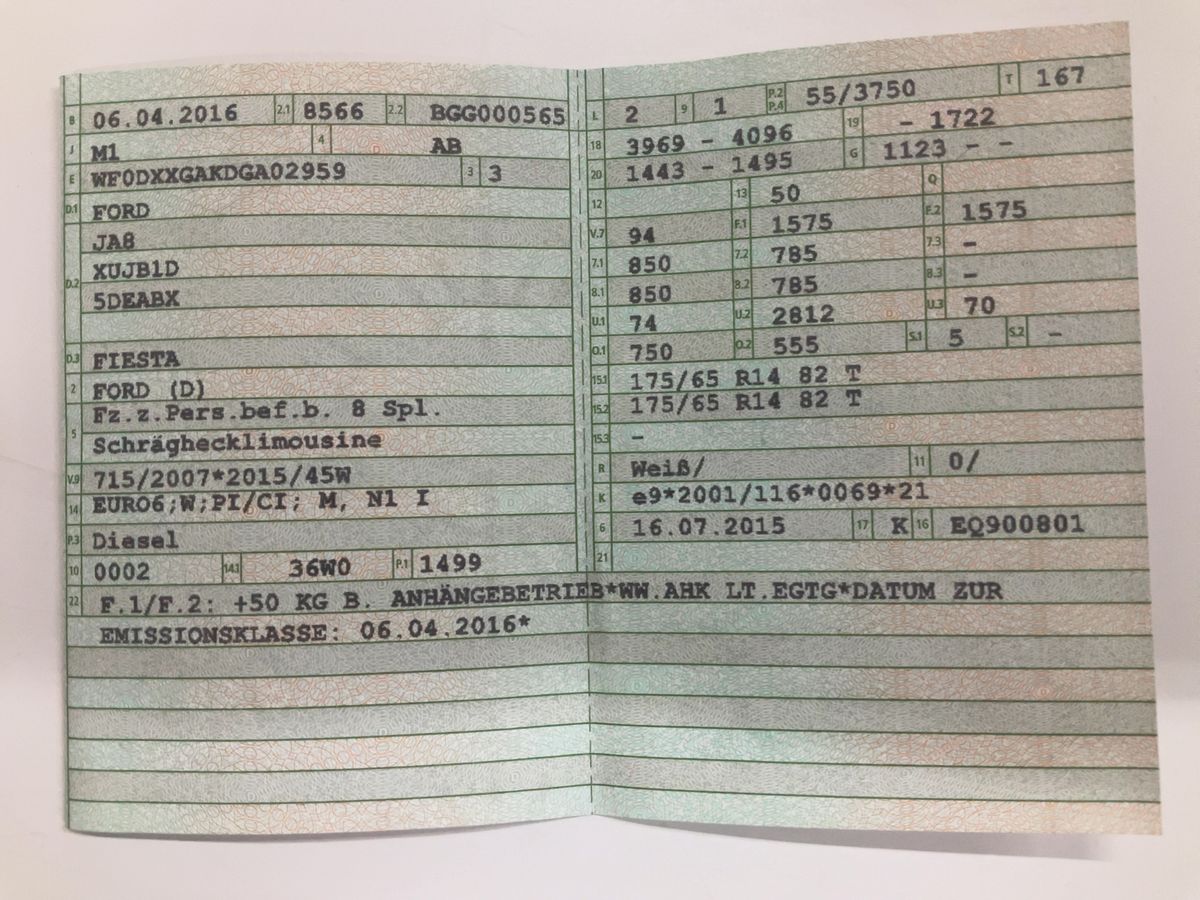 B 06.04.2016 2.1 8566 2.2 BGG000565
J M1 4 AB
E WF0DXXGAKDGA02959 3 3
D.1 FORD
JA8
D.2 XUJB1D
5DEABX
D.3 FIESTA
2 FORD (D)
Fz.z.Pers.bef.b. 8 Spl.
5 Schräghecklimousine
V.9 715/2007*2015/45W
14 EURO6;W;PI/CI; M, N1 I
P.3 Diesel
10 0002 14.1 36W0 P.1 1499
L 2 9 1 P.2 P.4 55/3750 T 167
18 3969 - 4096 19 - 1722
20 1443 - 1495 G 1123 - -
12 13 50 Q
V.7 94 F.1 1575 F.2 1575
7.1 850 7.2 785 7.3 -
8.1 850 8.2 785 8.3 -
U.1 74 U.2 2812 U.3 70
O.1 750 O.2 555 S.1 5 S.2 -
15.1 175/65 R14 82 T
15.2 175/65 R14 82 T
15.3 -
R Weiß/ 11 0/
K e9*2001/116*0069*21
6 16.07.2015 17 K 16 EQ900801
21
22 F.1/F.2: +50 KG B. ANHÄNGEBETRIEB*WW.AHK LT.EGTG*DATUM ZUR
EMISSIONSKLASSE: 06.04.2016*